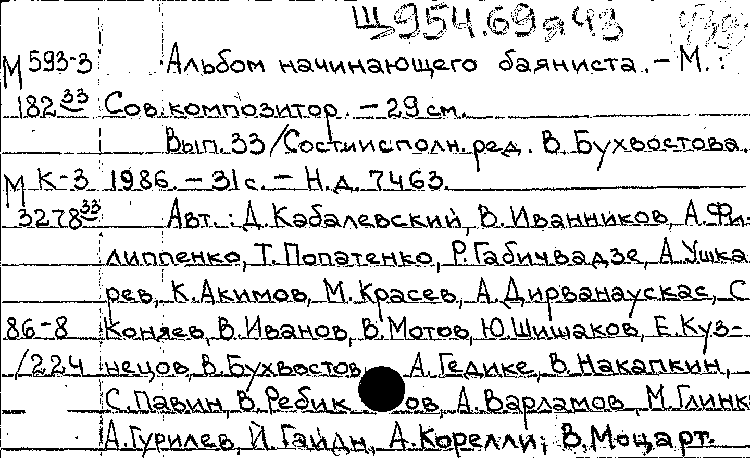 Щ954.69я43
М 593-3 Альбом начинающего баяниста. - М.:
182 33 Сов. композитор. - 29 см.
Вып. 33 / Сост. и исполн. ред. В. Бухвостова.
М К-3 1986. - 31 с. - Н.д. 7463.
3278 33 Авт.: Д. Кабалевский, В. Иванников, А. Фи-
липпенко, Т. Попатенко, Р. Габичвадзе, А. Ушка
рев, К. Акимов, М. Красев, А. Дирванаускас, С
86-8 Коняев, В. Иванов, В. Мотов, Ю. Шишаков, Е. Куз-
/224 нецов, В. Бухвостов, А. Гедике, В. Накапкин,
С. Павин, В. Ребиков, А. Варламов, М. Глинк
А. Гурилев, Й. Гайдн, А. Корелли, В. Моцарт.